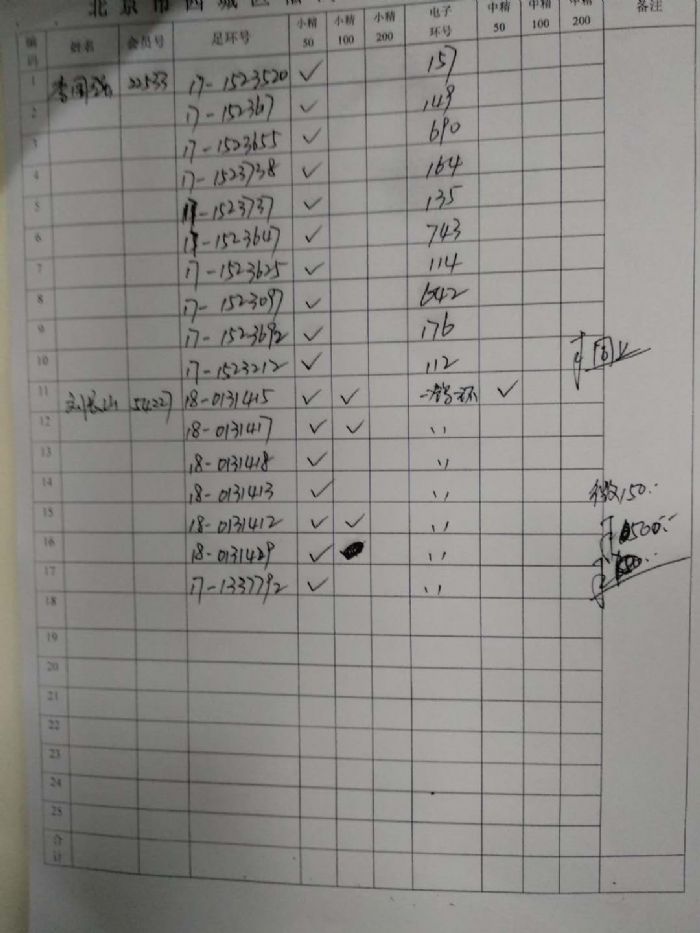 北京市西城区
编码 姓名 会员号 足环号 小精50 小精100 小精200 电子环号 中精50 中精100 中精200 备注
1 22533 17-1523520 ✓ 157
2 17-152367 ✓ 149
3 17-1523655 ✓ 690
4 17-1523738 ✓ 164
5 17-1523737 ✓ 135
6 17-1523647 ✓ 743
7 17-1523625 ✓ 114
8 17-1523097 ✓ 642
9 17-1523692 ✓ 176
10 17-1523212 ✓ 112
11 刘长山 54227 18-0131415 ✓ ✓ ✓
12 18-0131417 ✓ ✓ 〃
13 18-0131418 ✓ 〃
14 18-0131413 ✓ 〃
15 18-0131412 ✓ ✓ 〃
16 18-0131429 ✓ 〃
17 17-1337792 ✓ 〃
18
19
20
21
22
23
24
25
合计